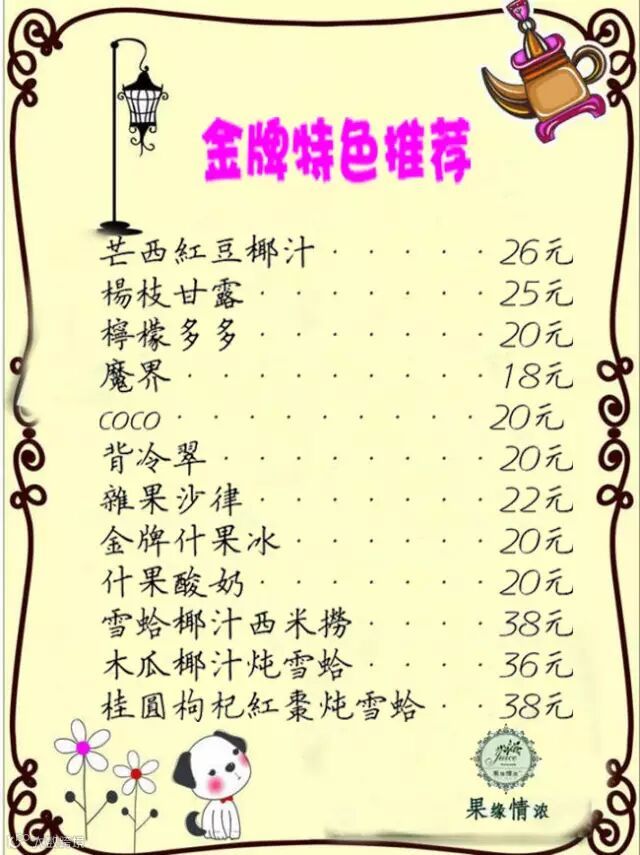 金牌特色推荐
芒西紅豆椰汁······26元
楊枝甘露······25元
檸檬多多······20元
魔界······18元
coco······20元
背冷翠······20元
雜果沙律······22元
金牌什果冰······20元
什果酸奶······20元
雪蛤椰汁西米撈······38元
木瓜椰汁炖雪蛤······36元
桂圓枸杞紅棗炖雪蛤······38元
Juice
果缘情浓